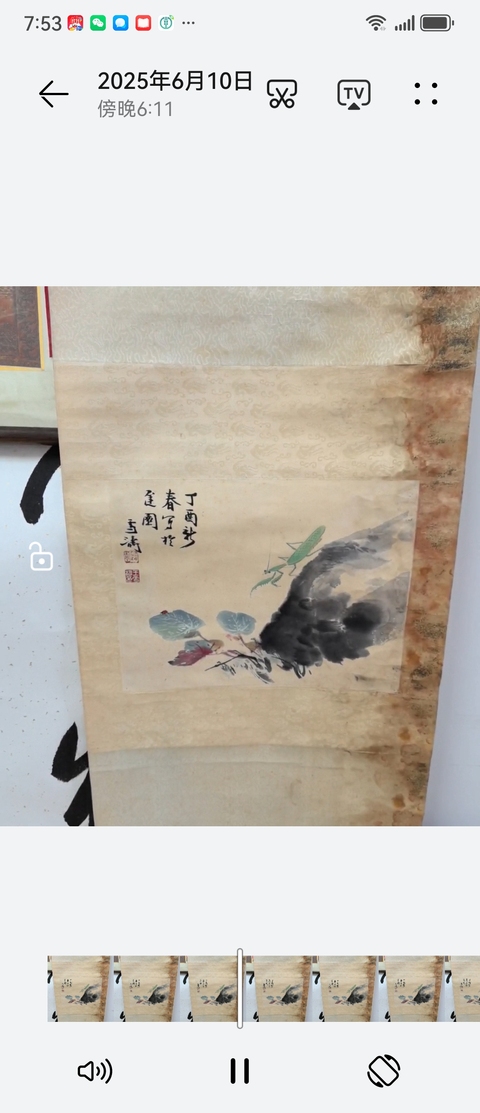 7:53
2025年6月10日
傍晚6:11
TV
丁酉新
春写於
園
雪濤